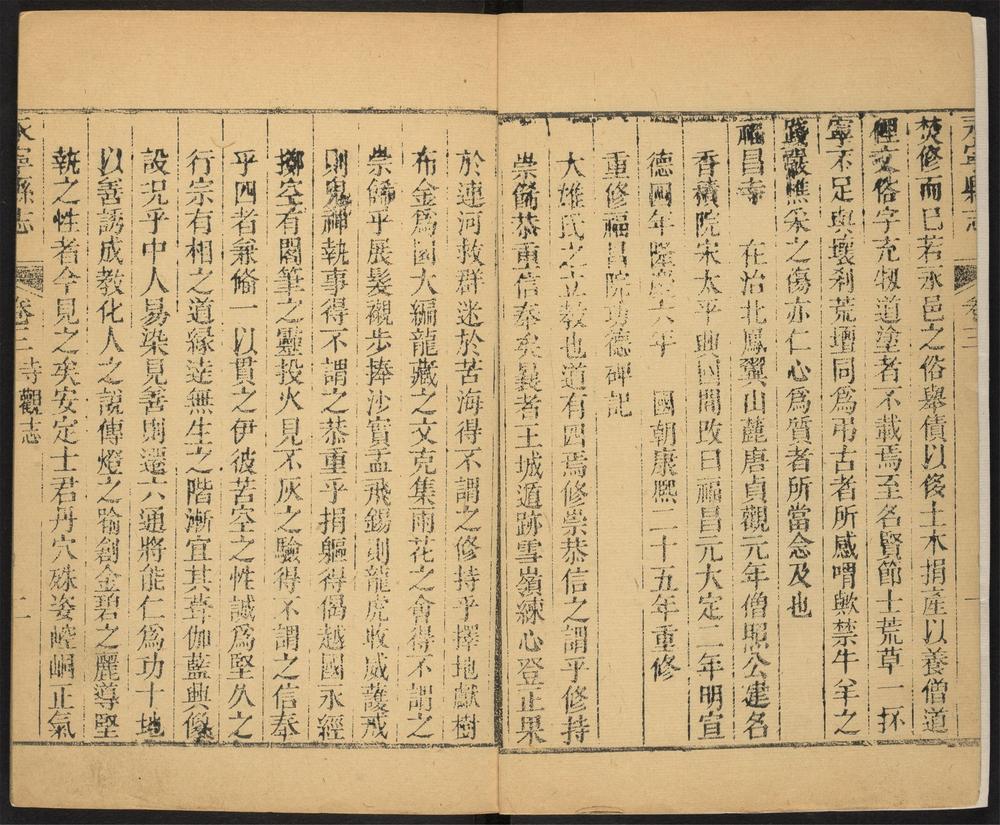 永寧縣志 卷三
焚修而已若永邑之俗舉債以後土木捐產以養僧道
俚文俗字充牣道塗者不載焉至名賢節士荒草一抔
寧不足與壞刹荒壇同為弔古者所感喟歟禁牛羊之
踐嚴樵采之傷亦仁心為質者所當念及也
福昌寺 在治北鳳翼山麓唐貞觀元年僧照公建名
香積院宋太平興國間改曰福昌元大定二年明宣
德四年隆慶六年 國朝康熙二十五年重修
重修福昌院功德碑記
大雄氏之立教也道有四焉修崇恭信之謂乎修持
崇脩恭重信奉矣曩者王城遁跡雪嶺練心登正果
於連河救群迷於苦海得不謂之修持乎擇地獻樹
布金為國大編龍藏之文克集雨花之會得不謂之
崇脩乎展髮襯步捧沙實盂飛錫則龍虎收威護戒
則鬼神執事得不謂之恭重乎捐軀得偈越國永經
擲空有閣筆之靈投火見不灰之驗得不謂之信奉
乎四者兼脩一以貫之伊彼苦空之性誠為堅久之
行宗有相之道緣達無生之階漸宜其聳伽藍興像
設況乎中人易染見善則遷六通將能仁為功十地
以善誘成教化人之說傳燈之喻創金碧之麗導堅
執之性者今見之矣安定士君丹穴殊姿崆峒正氣
永寧縣志 卷三 寺觀志 二